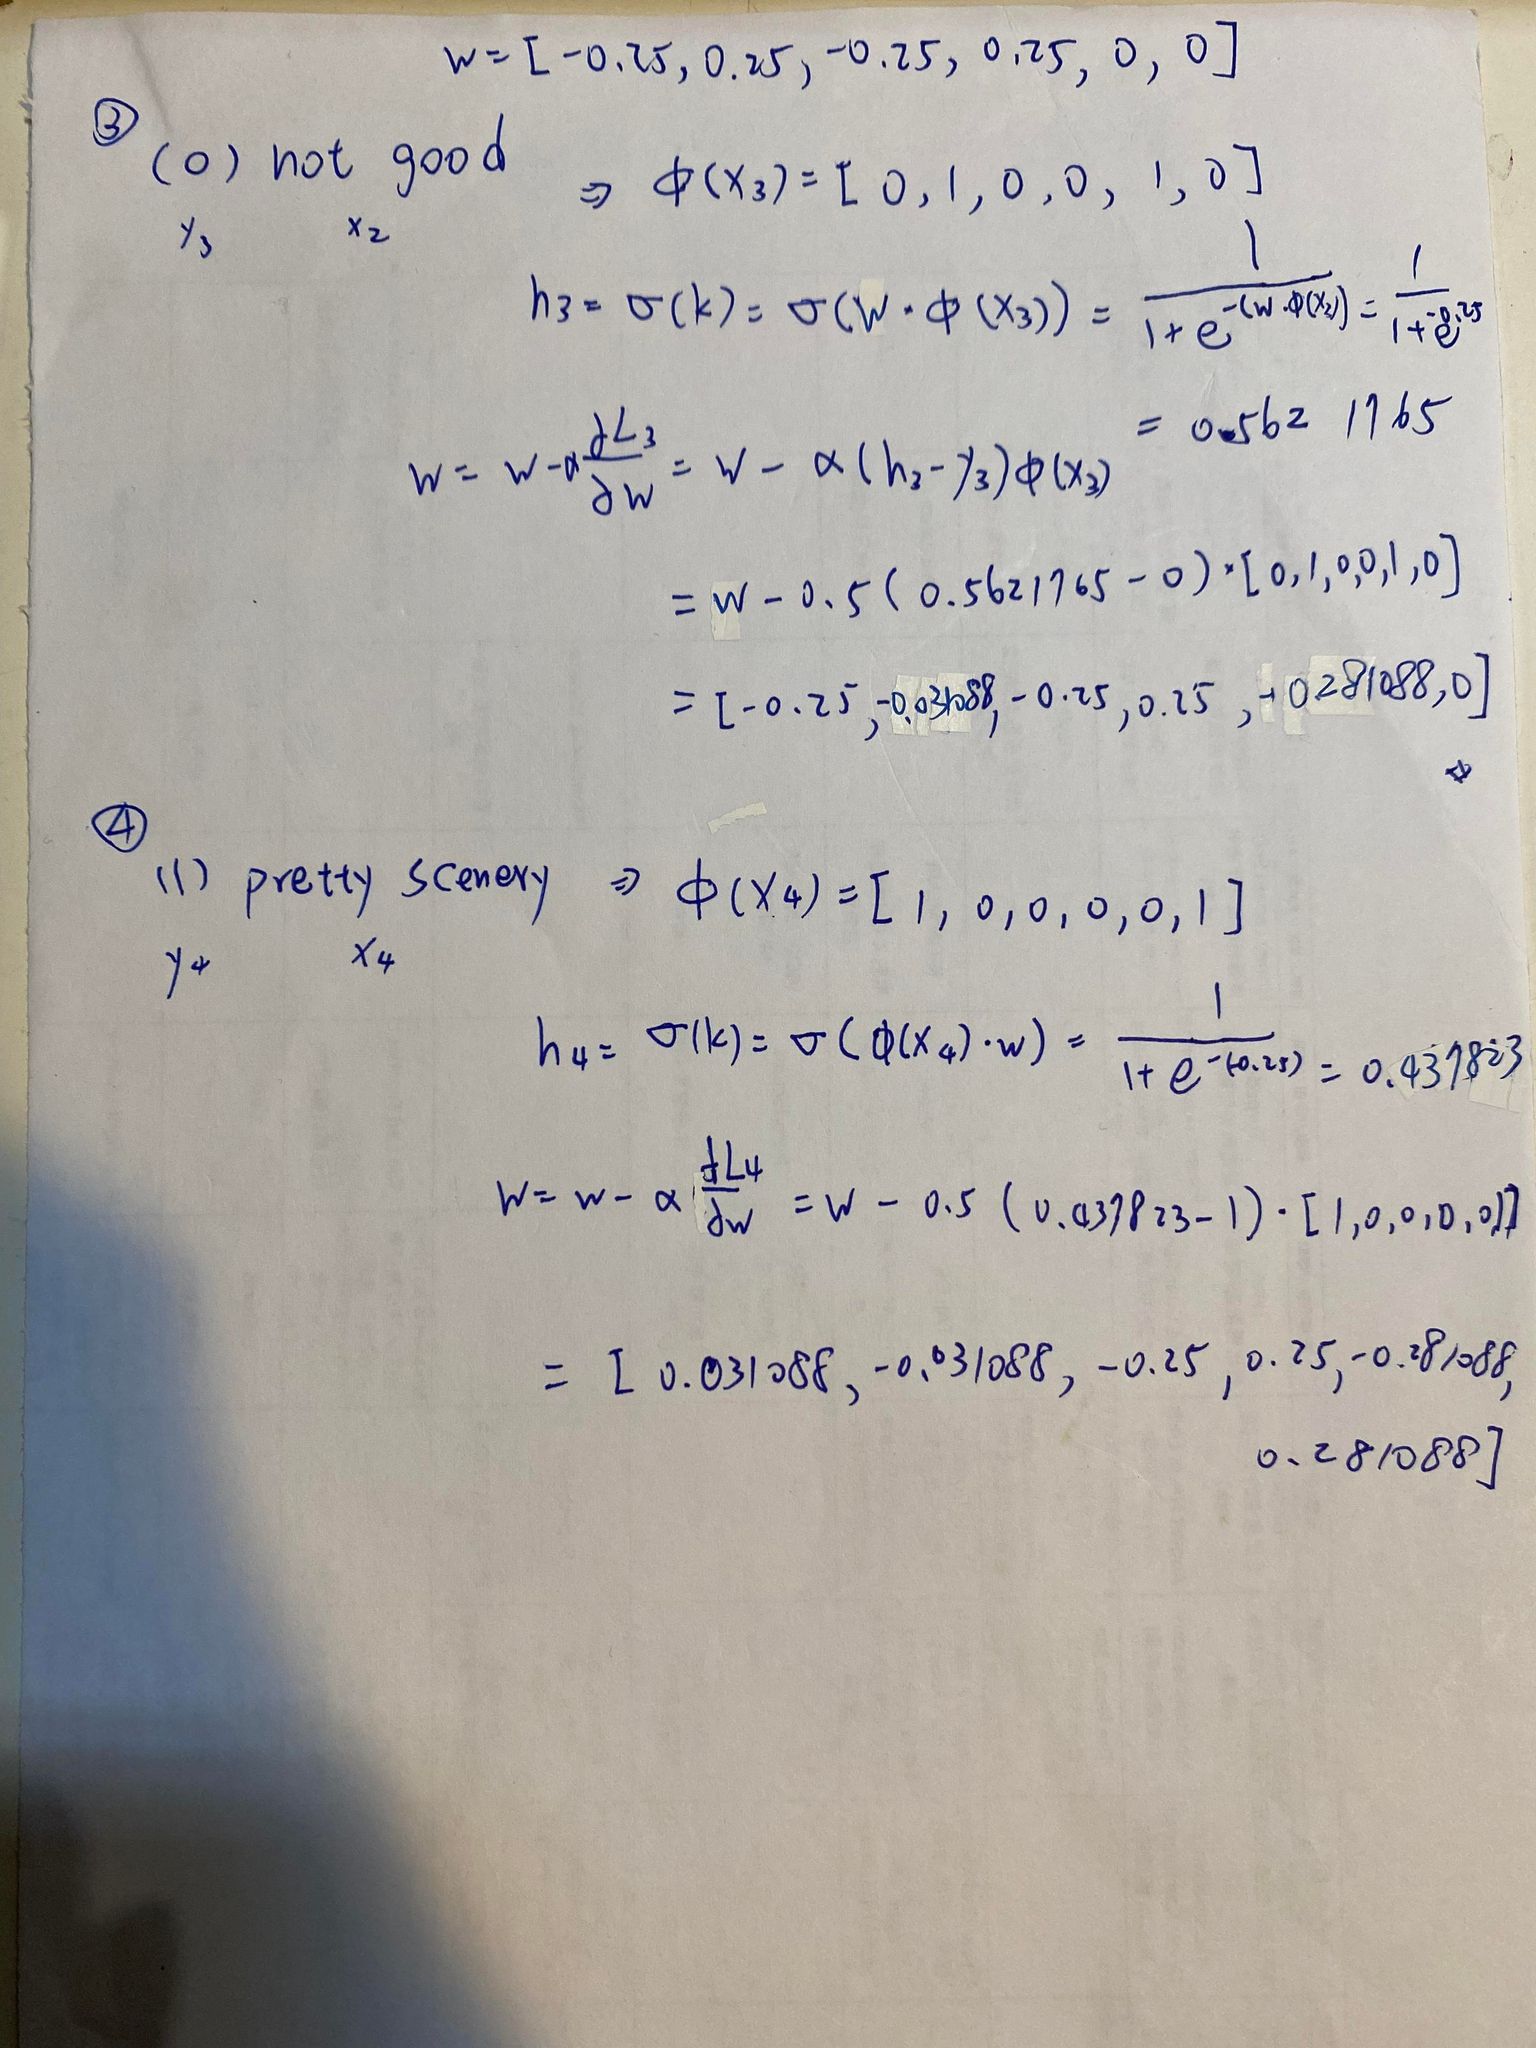 W = [-0.25, 0.25, -0.25, 0.25, 0, 0]
③
(0) not good ⇒ ϕ(X3) = [0, 1, 0, 0, 1, 0]
y3 x2
h3 = σ(k) = σ(W · ϕ(X3)) = 1/(1+e^-(W·ϕ(X3))) = 1/(1+e^-0.25)
= 0.5621765
W = W - α ∂L3/∂W = W - α(h3 - y3)ϕ(X3)
= W - 0.5(0.5621765 - 0) · [0,1,0,0,1,0]
= [-0.25, -0.031088, -0.25, 0.25, -0.281088, 0]
④
(1) pretty scenery ⇒ ϕ(X4) = [1, 0, 0, 0, 0, 1]
y4 x4
h4 = σ(k) = σ(ϕ(X4)·W) = 1/(1+e^-(-0.25)) = 0.437823
W = W - α ∂L4/∂W = W - 0.5(0.437823 - 1) · [1,0,0,0,0,1]
= [0.031088, -0.031088, -0.25, 0.25, -0.281088,
0.281088]